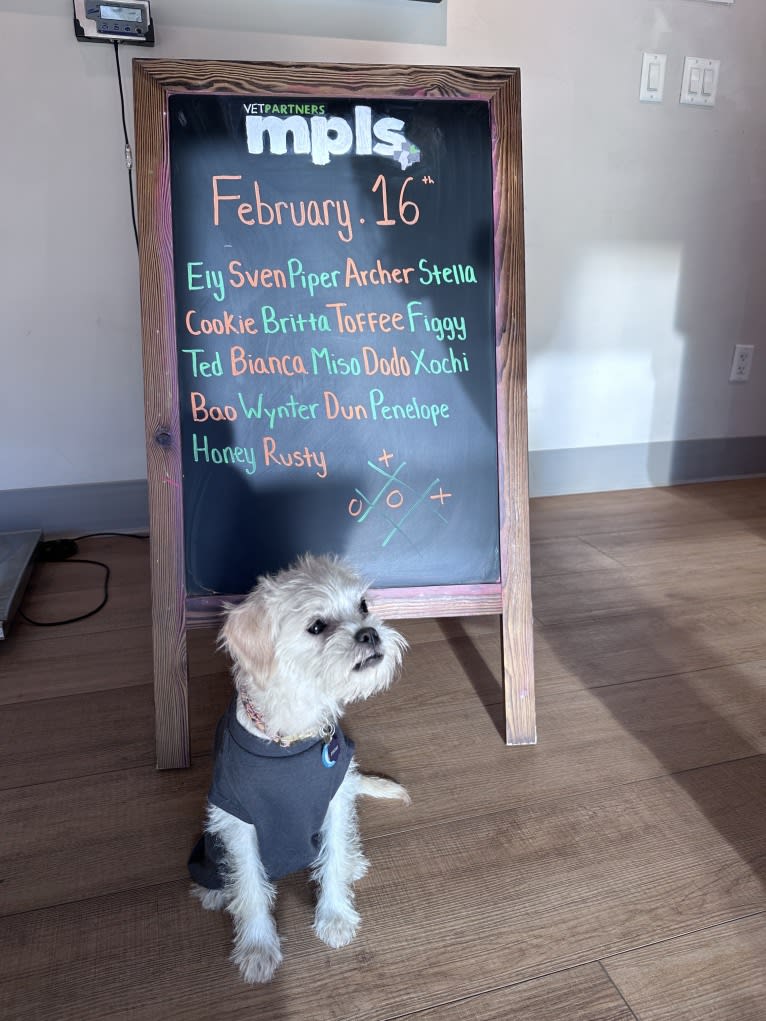 VETPARTNERS
mpls
February. 16th
Ely Sven Piper Archer Stella
Cookie Britta Toffee Figgy
Ted Bianca Miso Dodo Xochi
Bao Wynter Dun Penelope
Honey Rusty
+
O O +